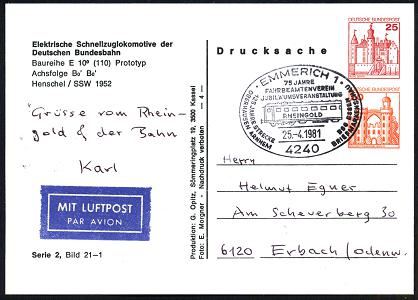 Elektrische Schnellzuglokomotive der
Deutschen Bundesbahn
Baureihe E 10⁰ (110) Prototyp
Achsfolge Bo' Bo'
Henschel / SSW 1952
Grüsse vom Rhein-
gold & der Bahn
Karl
MIT LUFTPOST
PAR AVION
Serie 2, Bild 21–1
Produktion: G. Opitz, Sömmeringplatz 19, 3500 Kassel
Foto: E. Morgner - Nachdruck verboten — 4 —
Drucksache
DEUTSCHE BUNDESPOST
25
DEUTSCHE BUNDESPOST
EMMERICH 1
75 JAHRE
FAHRBEAMTENVEREIN
JUBILÄUMSVERANSTALTUNG
RHEINGOLD
25.-4.1981
4240
125 JAHRE STRECKE
OBERHAUSEN ARNHEM
Herrn
Helmut Egner
Am Scheuerberg 30
6120 Erbach (odenw.